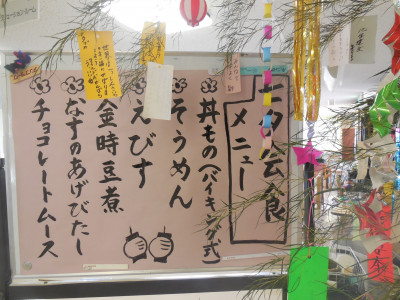 七夕会食
メニュー
丼もの(バイキング式)
そうめん
えびす
金時豆煮
なすのあげびたし
チョコレートムース